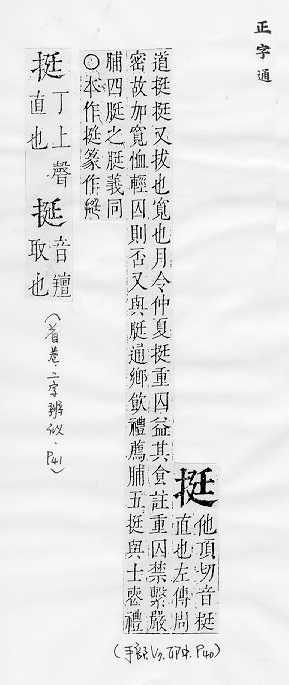 正字通
挺
他頂切音挺
直也左傳周
道挺挺又拔也寬也月令仲夏挺重囚益其食註重囚禁繫嚴
密故加寬恤輕囚則否又與脡通鄉飲禮薦脯五挺與士喪禮
脯四脡之脡義同
〇本作挺篆作
(手部 P40)
挺
丁上聲
直也
挺
音羶
取也
(首卷.二字辨似.P41)